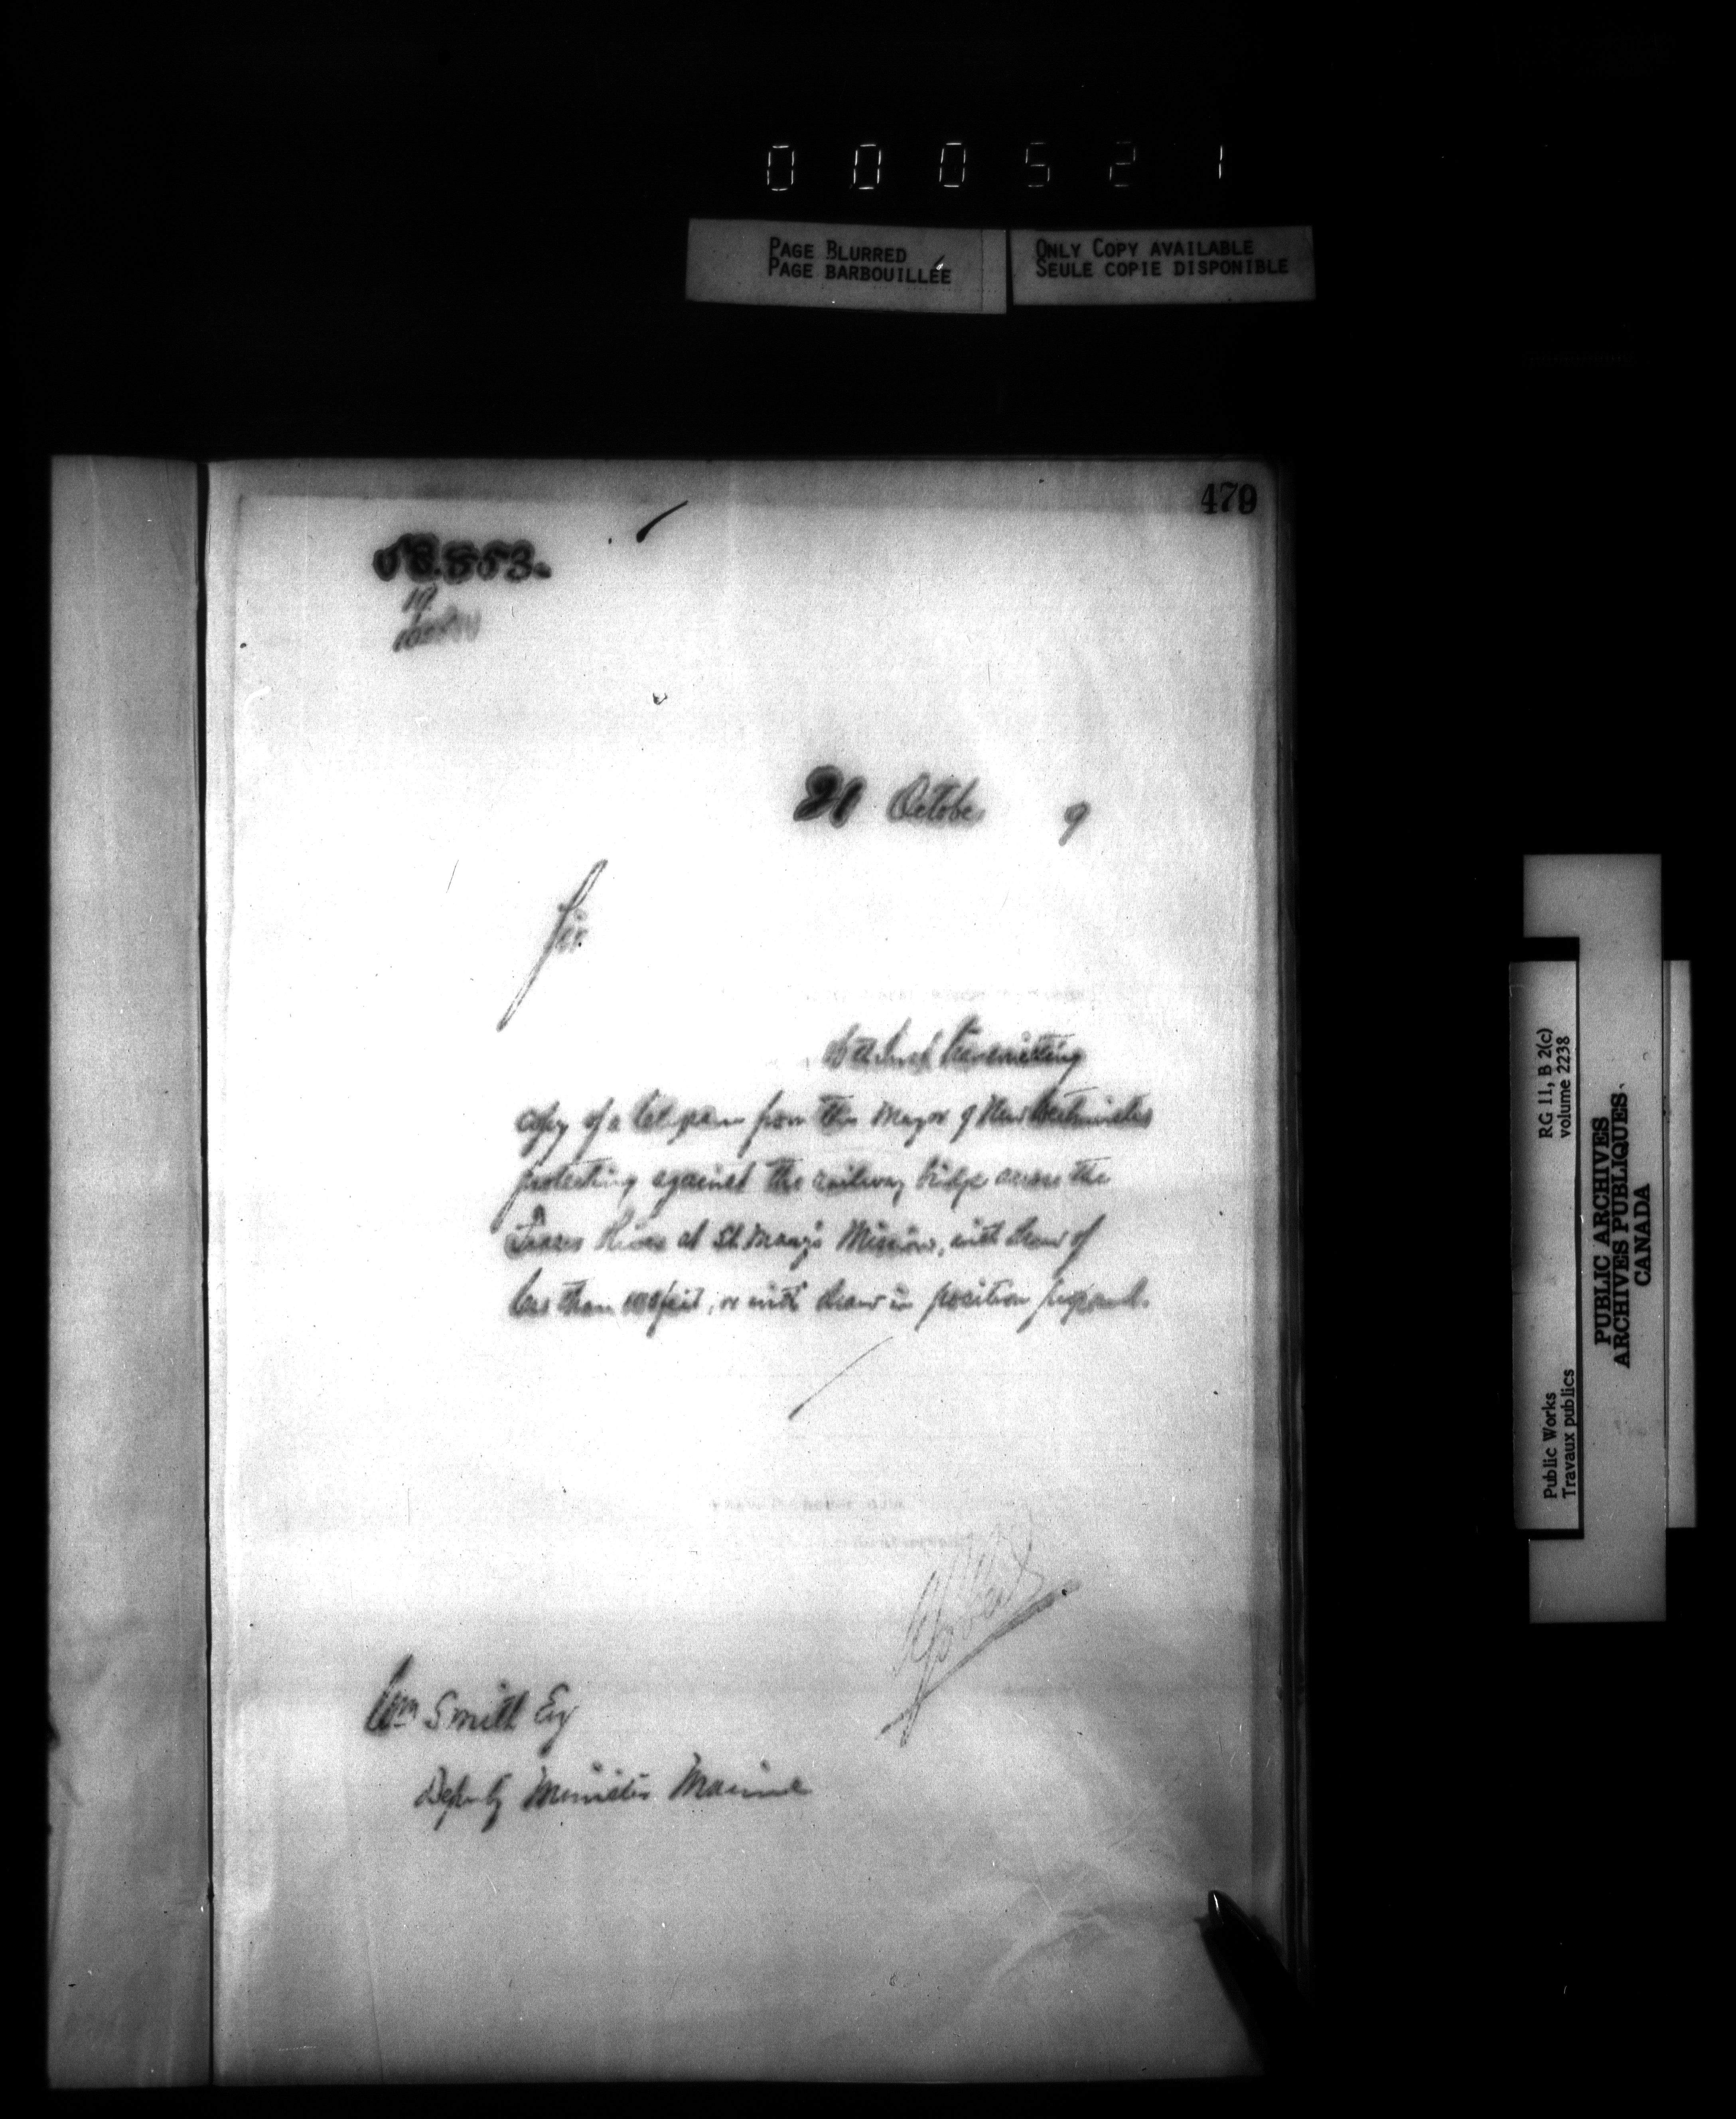 000521
PAGE BLURRED
PAGE BARBOUILLÉE
ONLY COPY AVAILABLE
SEULE COPIE DISPONIBLE
470
19
21 October 9
Sir
Inst transmitting
copy of a telegram from the Mayor of New Westminster
protesting against the railway bridge across the
Fraser River at St Mary's Mission, with draw of
less than 100 feet, or with draw in position proposed.
Wm Smith Esq
Deputy Minister Marine
Public Works
Travaux publics
RG 11, B 2(c)
volume 2238
PUBLIC ARCHIVES
ARCHIVES PUBLIQUES
CANADA